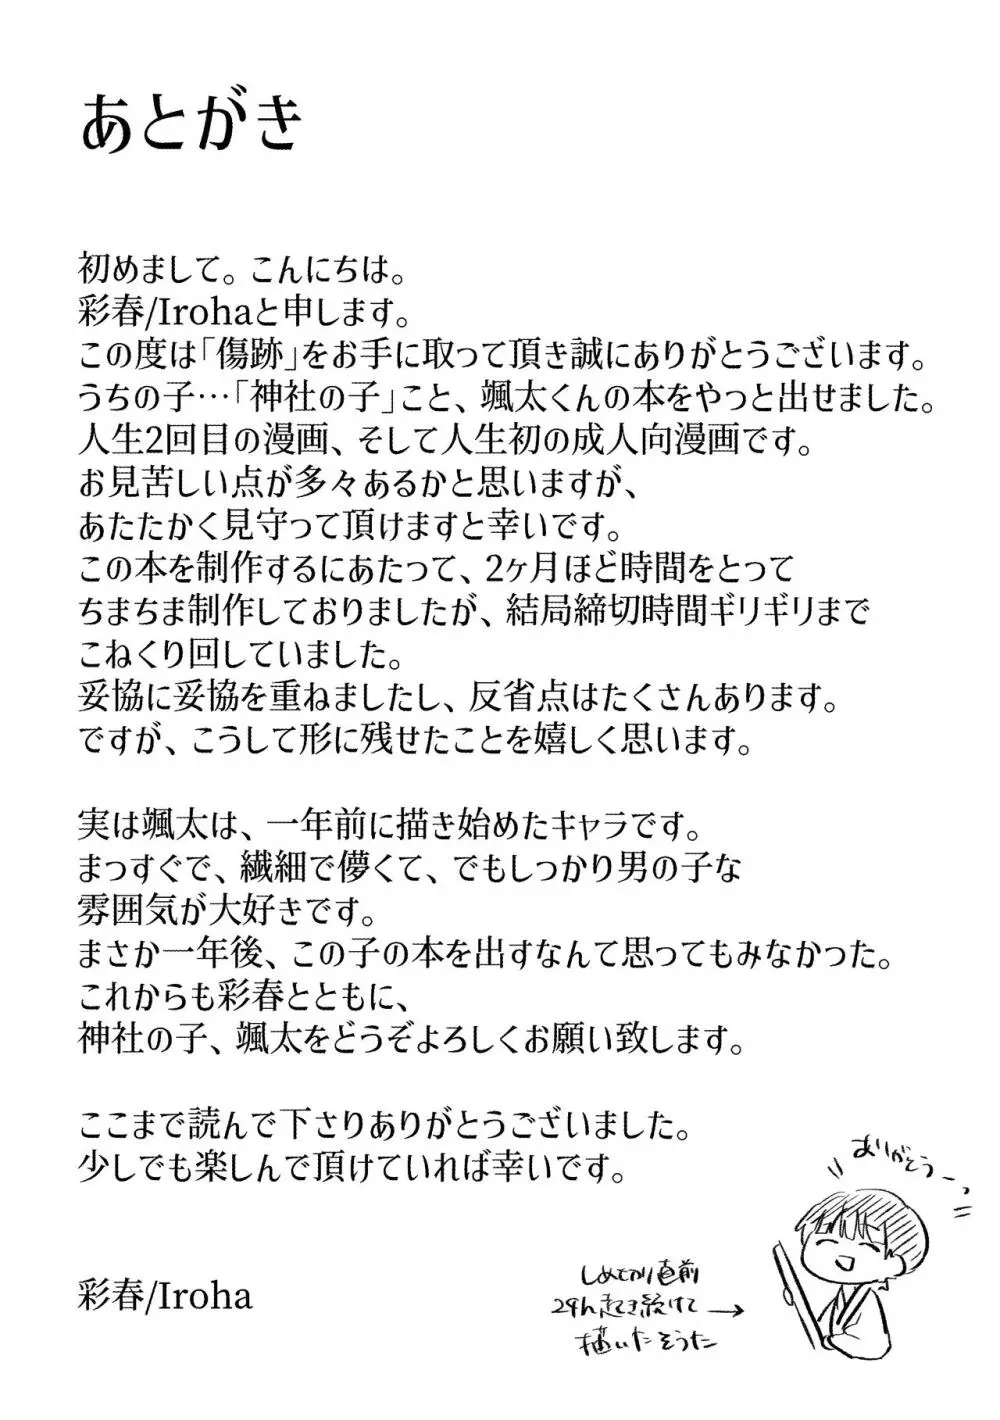 あとがき
初めまして。こんにちは。
彩春/Irohaと申します。
この度は「傷跡」をお手に取って頂き誠にありがとうございます。
うちの子…「神社の子」こと、颯太くんの本をやっと出せました。
人生2回目の漫画、そして人生初の成人向漫画です。
お見苦しい点が多々あるかと思いますが、
あたたかく見守って頂けますと幸いです。
この本を制作するにあたって、2ヶ月ほど時間をとって
ちまちま制作しておりましたが、結局締切時間ギリギリまで
こねくり回していました。
妥協に妥協を重ねましたし、反省点はたくさんあります。
ですが、こうして形に残せたことを嬉しく思います。
実は颯太は、一年前に描き始めたキャラです。
まっすぐで、繊細で儚くて、でもしっかり男の子な
雰囲気が大好きです。
まさか一年後、この子の本を出すなんて思ってもみなかった。
これからも彩春とともに、
神社の子、颯太をどうぞよろしくお願い致します。
ここまで読んで下さりありがとうございました。
少しでも楽しんで頂けていれば幸いです。
ありがとうーっ
しめきり直前
29h起き続けて
描いたそうた
彩春/Iroha